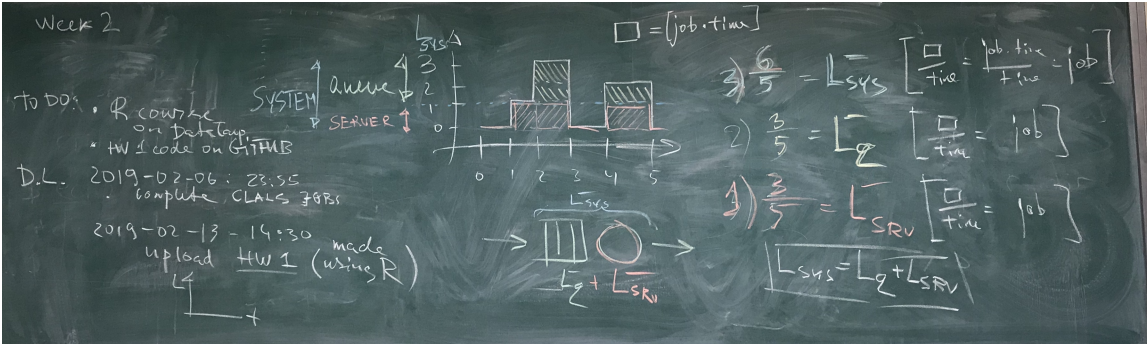 Week 2
TO DO: • R course
on DataCamp
• HW 1 code on GITHUB
D.L. 2019-02-06 : 23:55
• Complete CLASS JOBS
2019-02-13 - 14:30
upload HW 1 (made using R)
L
t
L sys
3
2
1
0
SYSTEM
Queue
SERVER
0 1 2 3 4 5
L sys
L q + L SRV
□ = [job·time]
3) 6/5 = L sys [□/time = job·time/time = job]
2) 3/5 = L q [□/time = job]
1) 3/5 = L SRV [□/time = job]
L sys = L q + L SRV